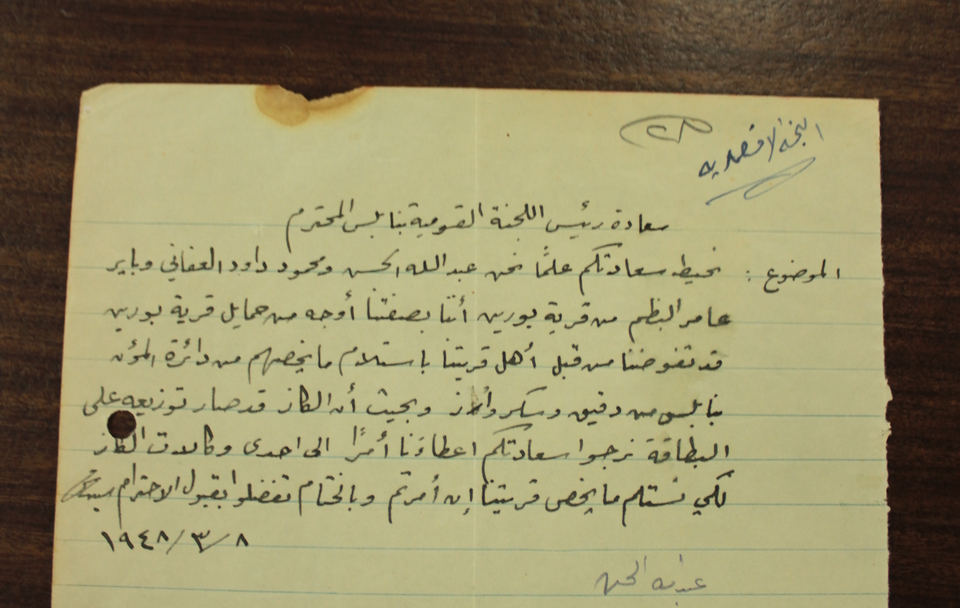 ٢٨
اللجنة الاقتصاديه
سعادة رئيس اللجنة القومية بنابلس المحترم
الموضوع : نحيط سعادتكم علمًا نحن عبد الله الحسن ومحمود داود العفاني
عامر البظم من قرية بورين أننا بصفتنا أوجه من حمايل قرية بورين
قد تفوضنا من قبل أهل قريتنا باستلام ما يخصهم من دائرة المؤن
بنابلس من دقيق وسكر وأرز وبحيث أن الكاز قد صار توزيعه على
البطاقة نرجوا سعادتكم اعطاءنا أمرًا الى احدى وكالات الكاز
لكي نستلم ما يخص قريتنا إن أمرتم وبالختام تفضلوا بقبول الاحترام
١٩٤٨/٣/٨
عبد الله الحسن